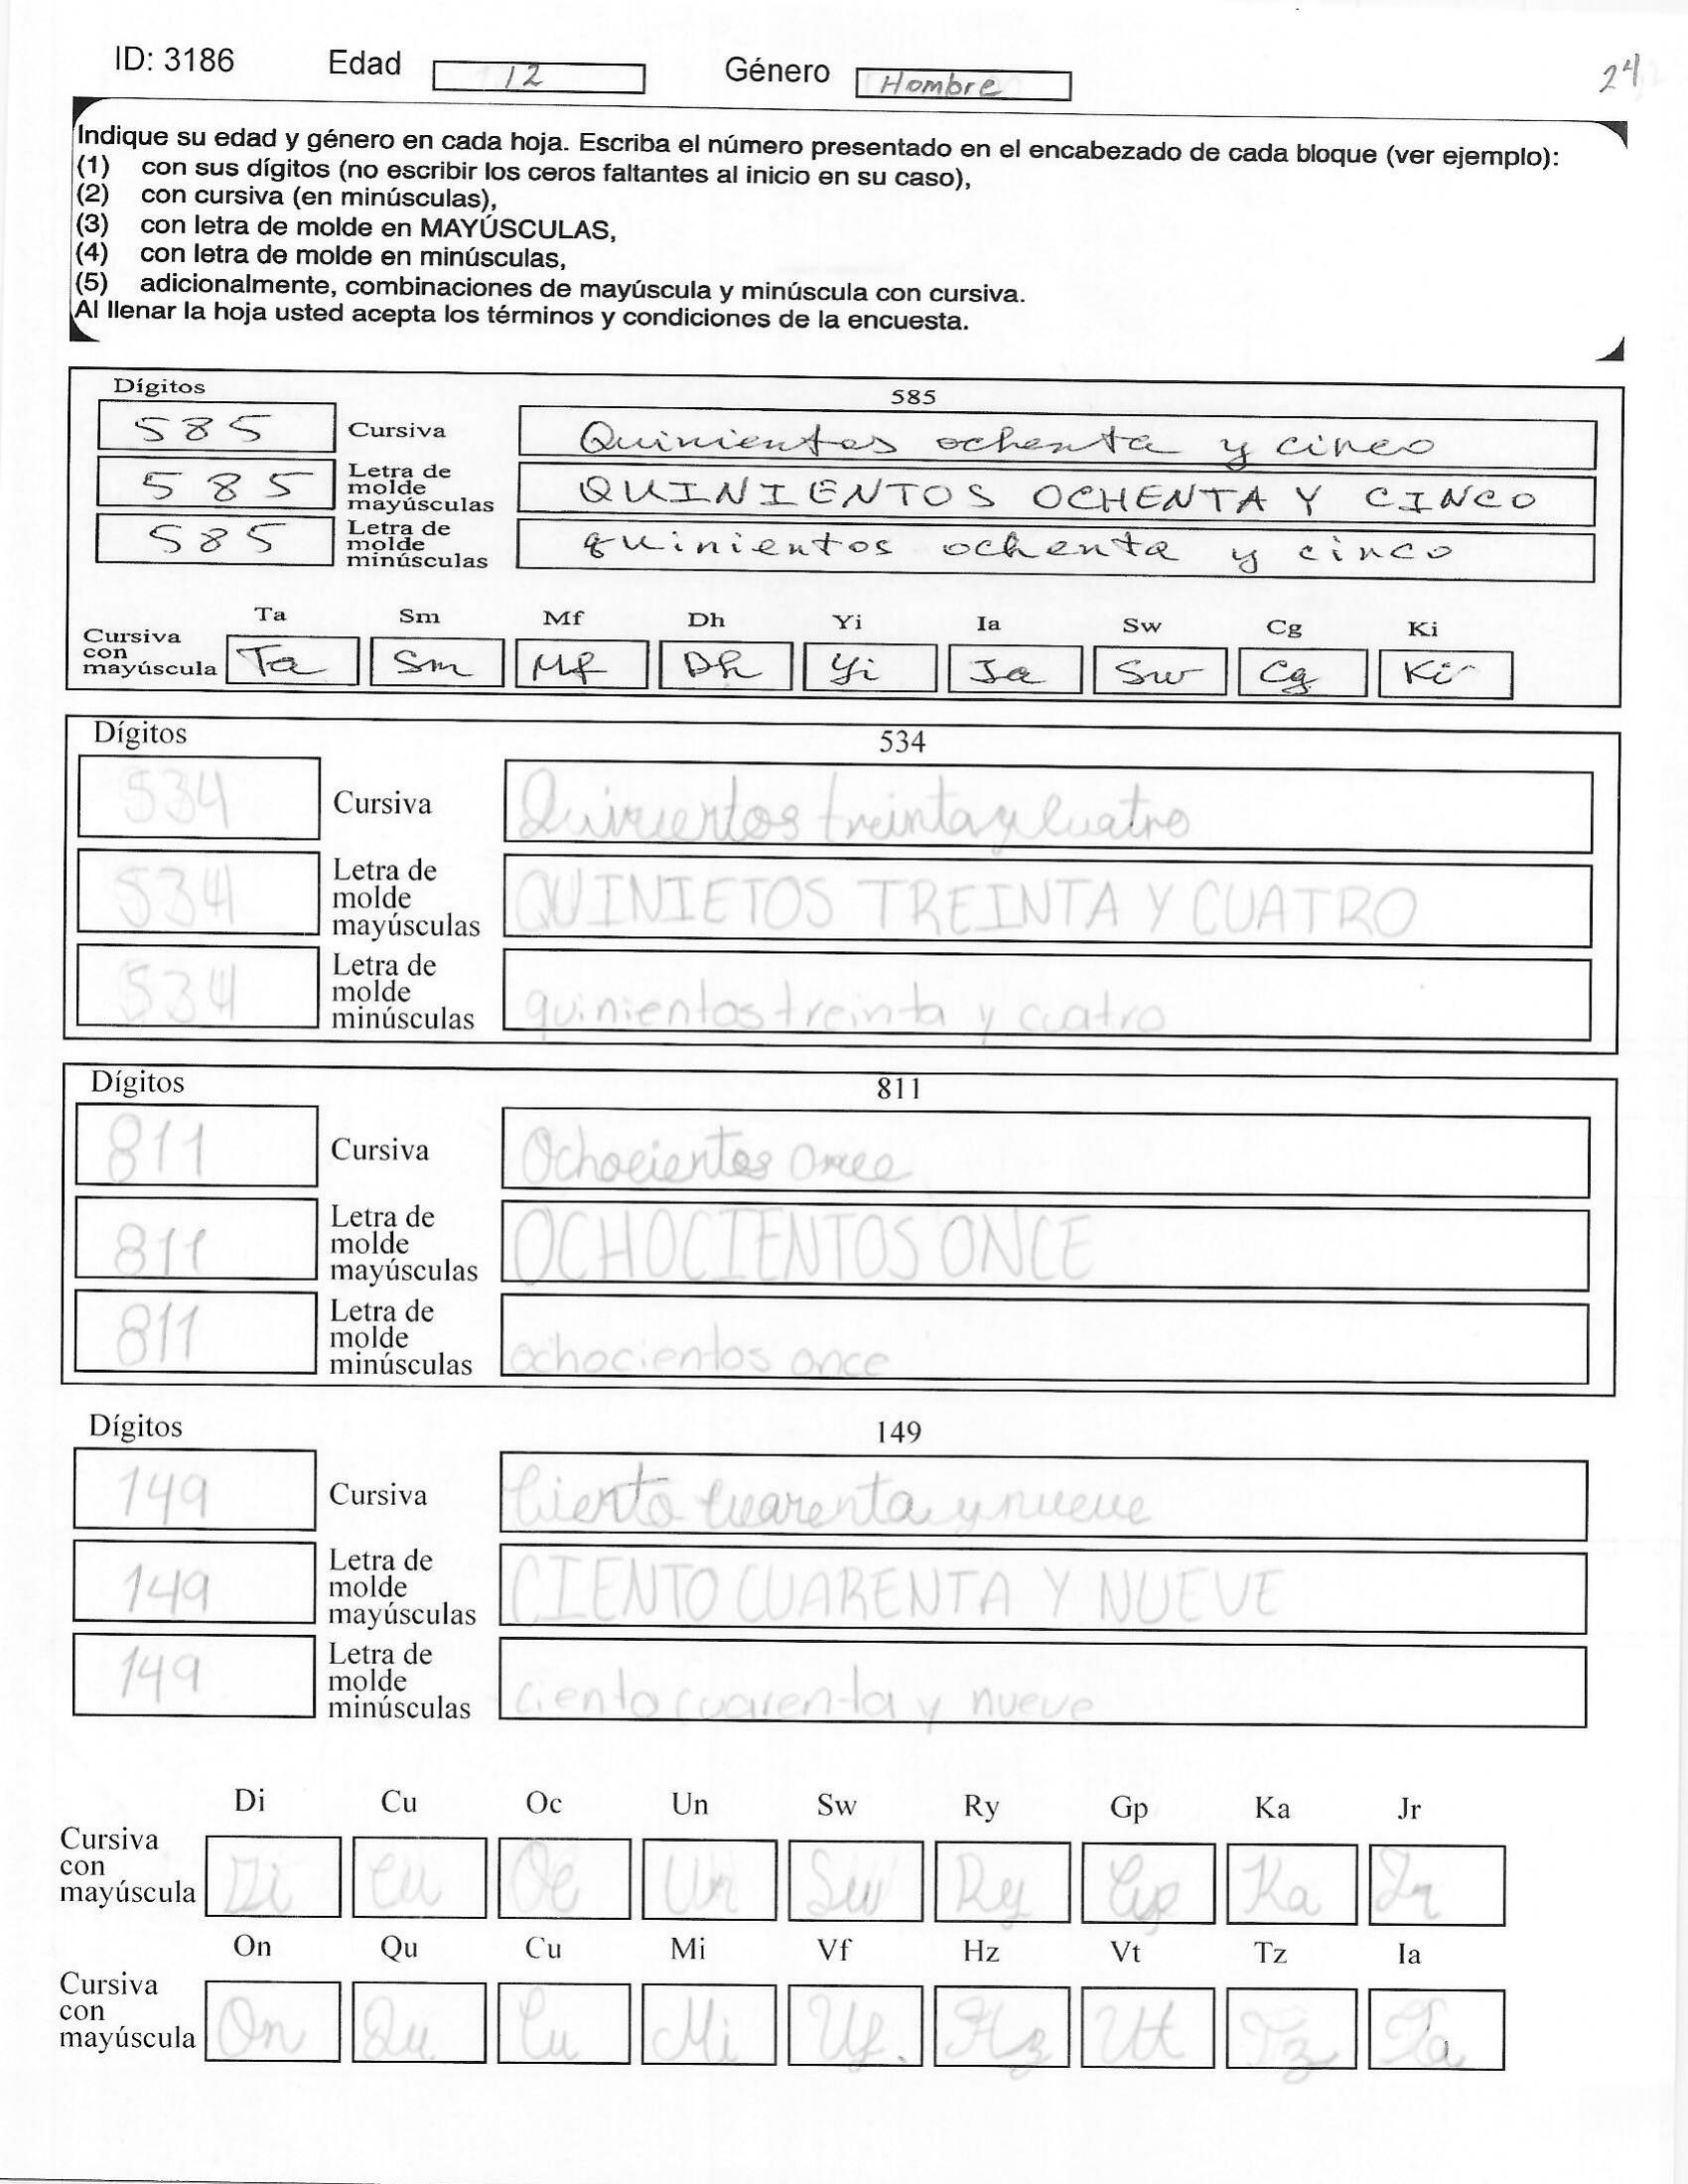 ID: 3186 Edad 12 Género Hombre 24
Indique su edad y género en cada hoja. Escriba el número presentado en el encabezado de cada bloque (ver ejemplo):
(1) con sus dígitos (no escribir los ceros faltantes al inicio en su caso),
(2) con cursiva (en minúsculas),
(3) con letra de molde en MAYÚSCULAS,
(4) con letra de molde en minúsculas,
(5) adicionalmente, combinaciones de mayúscula y minúscula con cursiva.
Al llenar la hoja usted acepta los términos y condiciones de la encuesta.
Dígitos 585
585 Cursiva Quinientos ochenta y cinco
585 Letra de molde mayúsculas QUINIENTOS OCHENTA Y CINCO
585 Letra de molde minúsculas quinientos ochenta y cinco
Ta Sm Mf Dh Yi Ia Sw Cg Ki
Cursiva con mayúscula Ta Sm Mf Dh Yi Ia Sw Cg Ki
Dígitos 534
534 Cursiva Quinientos treinta y cuatro
534 Letra de molde mayúsculas QUINIETOS TREINTA Y CUATRO
534 Letra de molde minúsculas quinientos treinta y cuatro
Dígitos 811
811 Cursiva Ochocientos once
811 Letra de molde mayúsculas OCHOCIENTOS ONCE
811 Letra de molde minúsculas ochocientos once
Dígitos 149
149 Cursiva Ciento cuarenta y nueve
149 Letra de molde mayúsculas CIENTO CUARENTA Y NUEVE
149 Letra de molde minúsculas ciento cuarenta y nueve
Di Cu Oc Un Sw Ry Gp Ka Jr
Cursiva con mayúscula Di Cu Oc Un Sw Ry Gp Ka Jr
On Qu Cu Mi Vf Hz Vt Tz Ia
Cursiva con mayúscula On Qu. Cu Mi Vf. Hz Vt Tz Ia